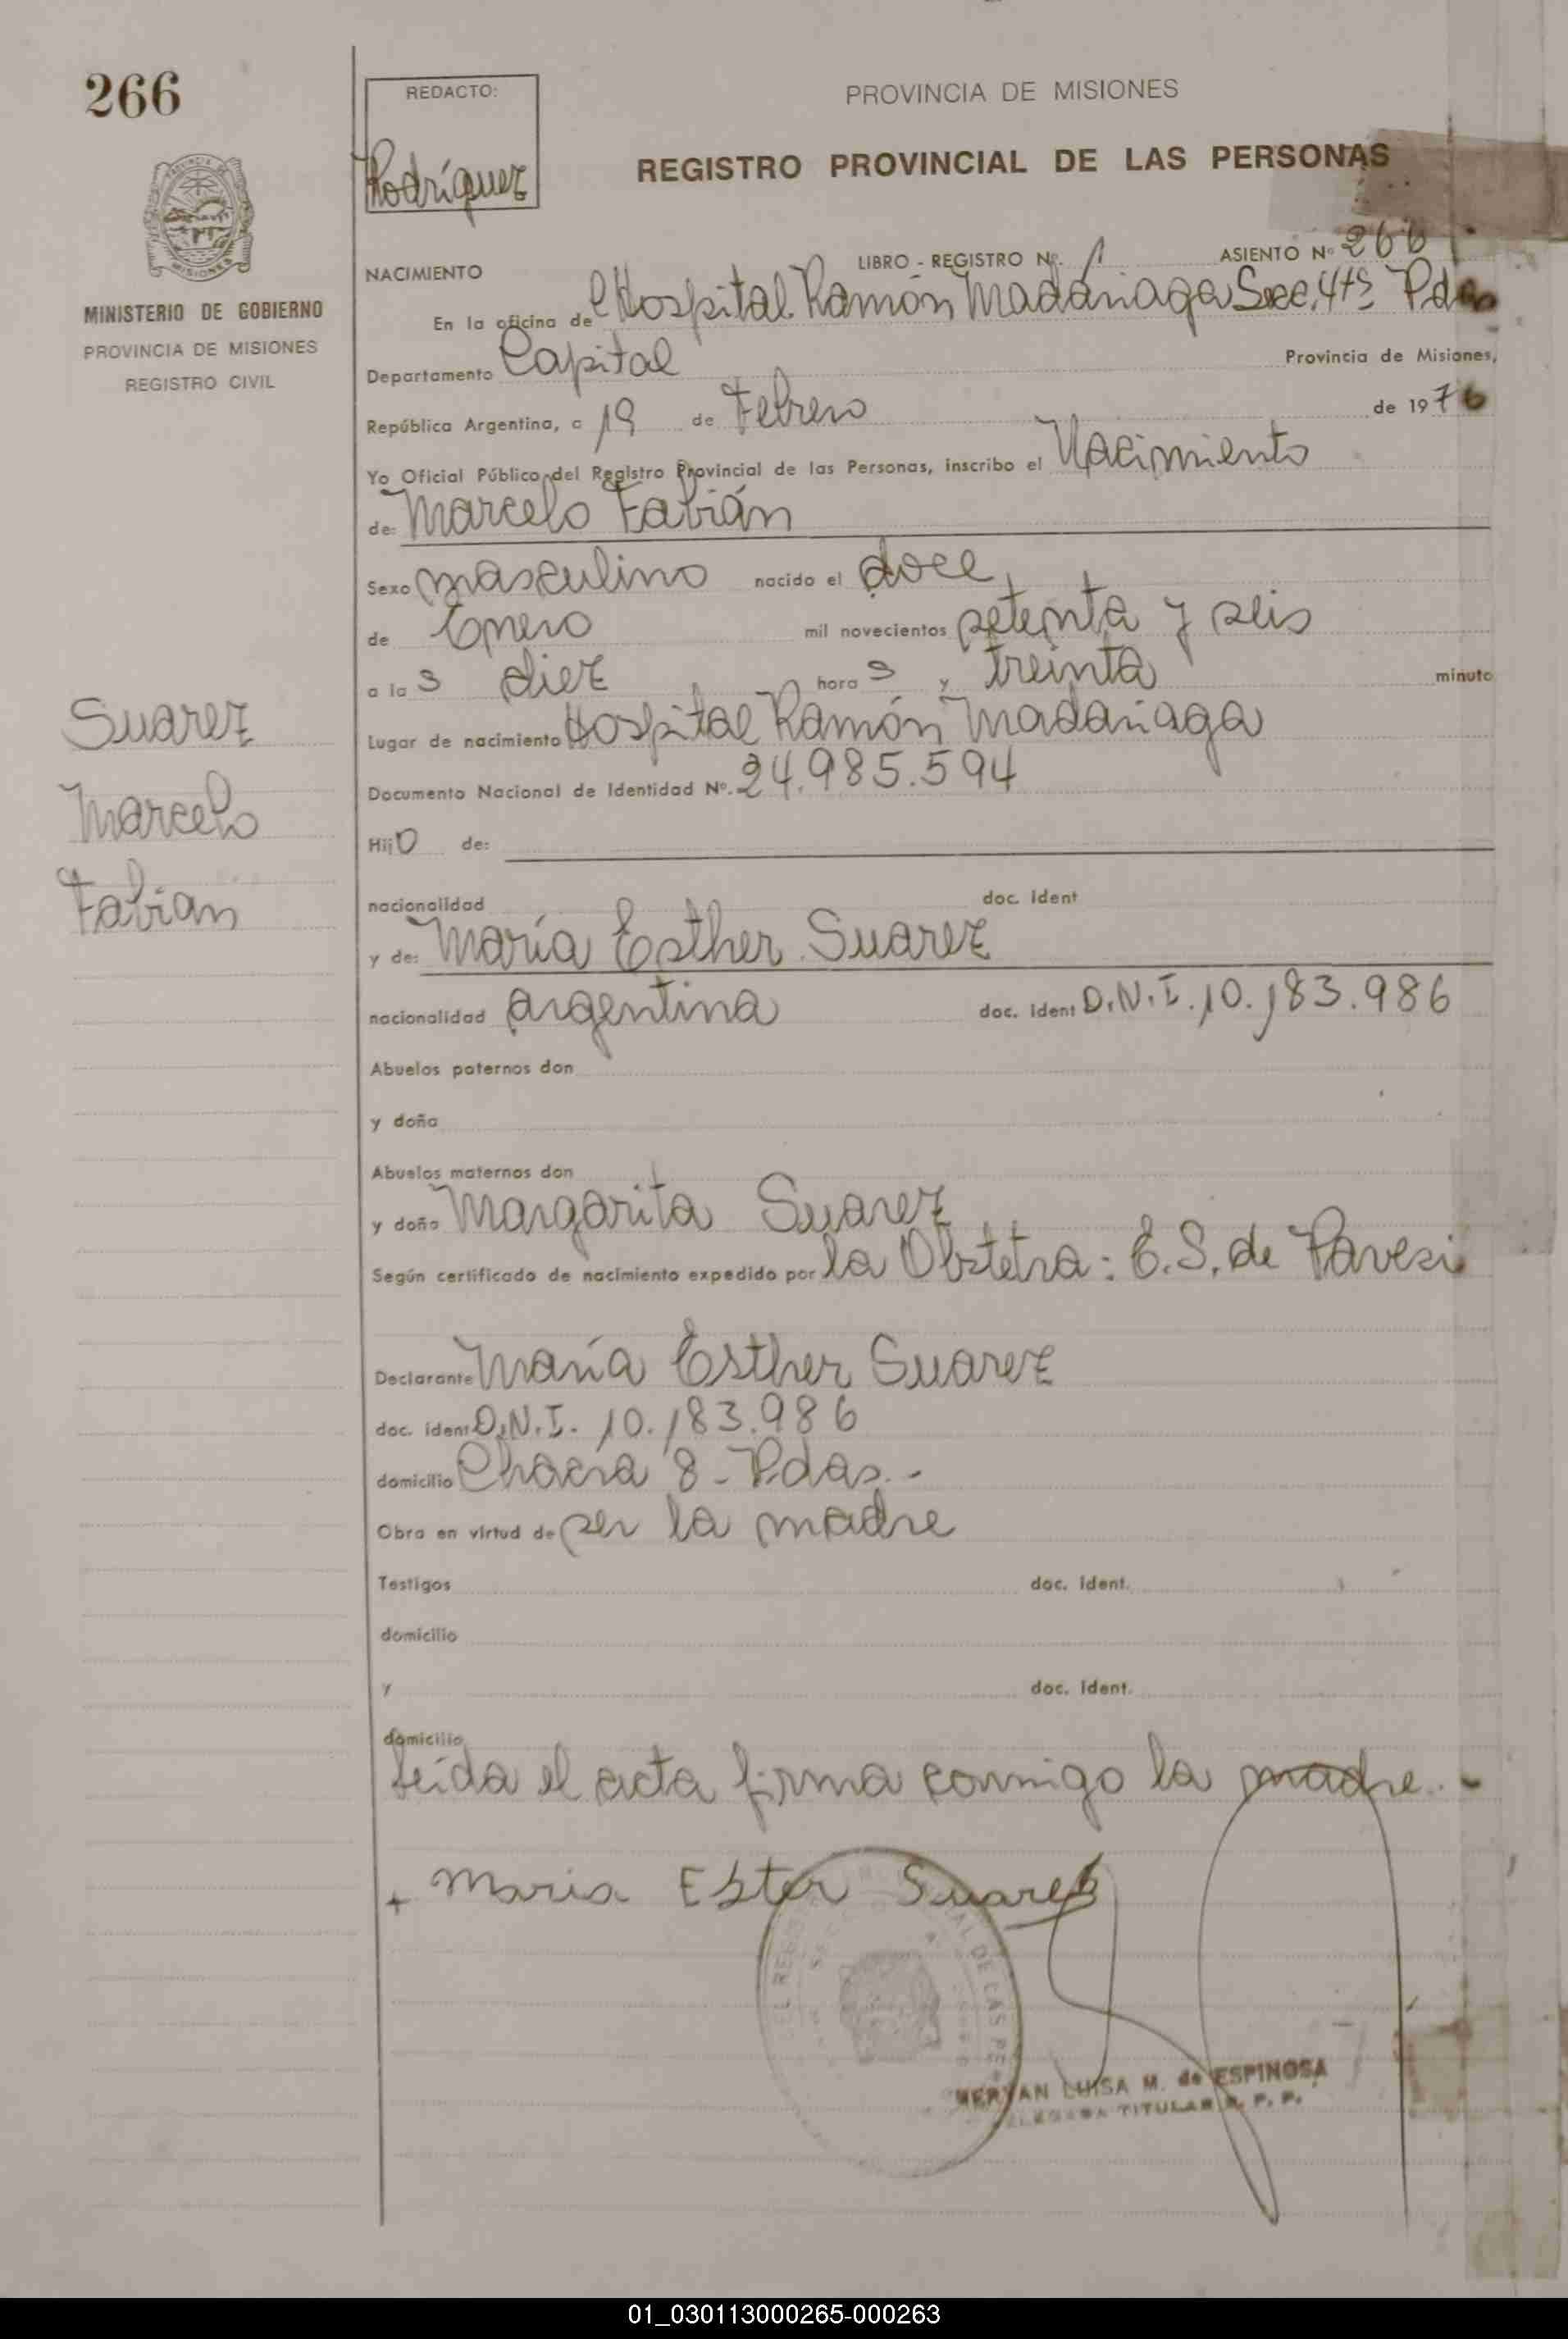 266
REDACTO:
Rodríguez
PROVINCIA DE MISIONES
REGISTRO PROVINCIAL DE LAS PERSONAS
MISIONES
MINISTERIO DE GOBIERNO
PROVINCIA DE MISIONES
REGISTRO CIVIL
NACIMIENTO LIBRO - REGISTRO Nº. 1 ASIENTO Nº 266
En la oficina de Hospital Ramón Madariaga Secc. 4ta Pdas
Departamento Capital Provincia de Misiones,
República Argentina, a 19 de Febrero de 1976
Yo Oficial Público del Registro Provincial de las Personas, inscribo el Nacimiento
de: Marcelo Fabián
Sexo masculino nacido el doce
de Enero mil novecientos setenta y seis
a la s diez hora s y treinta minuto
Suarez
Marcelo
Fabian
Lugar de nacimiento Hospital Ramón Madariaga
Documento Nacional de Identidad Nº. 24.985.594
Hijo de:
nacionalidad doc. ident
y de: María Esther Suarez
nacionalidad argentina doc. ident D.N.I. 10.183.986
Abuelos paternos don
y doña
Abuelos maternos don
y doña Margarita Suarez
Según certificado de nacimiento expedido por la Obstetra: E.S. de Pavesi
Declarante María Esther Suarez
doc. ident D.N.I. 10.183.986
domicilio Chacra 8 - Pdas. -
Obra en virtud de ser la madre
Testigos doc. ident.
domicilio
y doc. ident.
domicilio
Leída el acta firma conmigo la madre. -
+ Maria Ester Suarez
LUISA M. de ESPINOSA
TITULAR R. P. P.
01_030113000265-000263